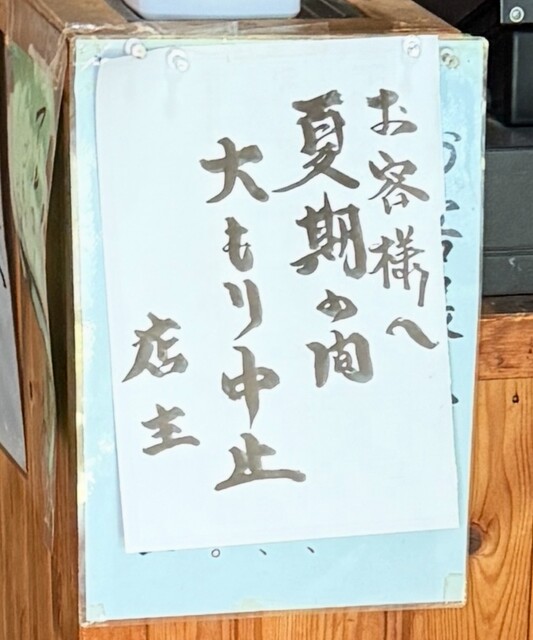 お客様へ
夏期の間
大もり中止
店主